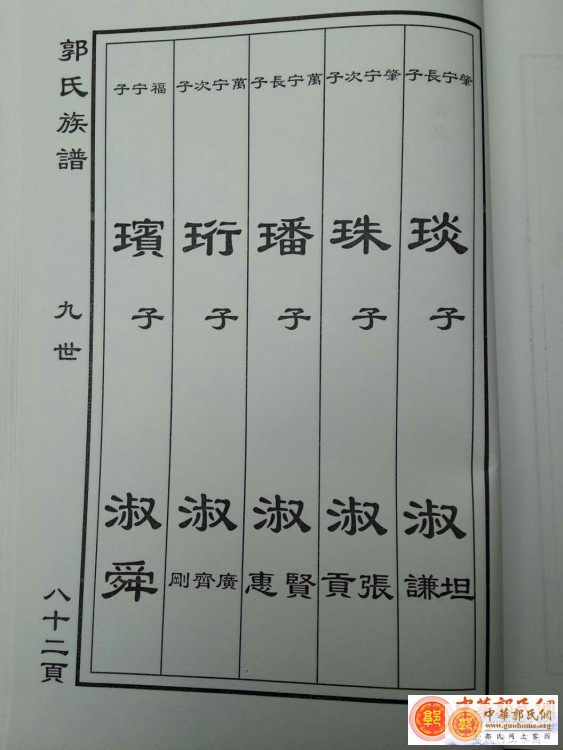 郭氏族譜
九世
八十二頁
肇宁長子
琰
子
淑
坦謙
肇宁次子
珠
子
淑
張貢
萬宁長子
璠
子
淑
賢惠
萬宁次子
珩
子
淑
廣齊剛
福宁子
璸
子
淑
舜
中華郭氏網
www.guohome.org
郭氏网上家园